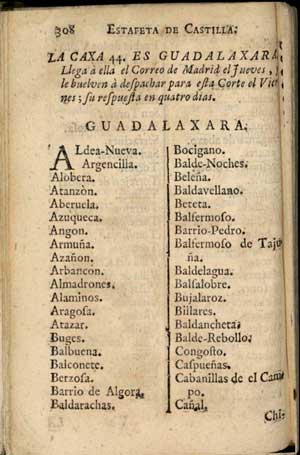 308 ESTAFETA DE CASTILLA:
LA CAXA 44. ES GUADALAXARA
Llega à ella el Correo de Madrid el Jueves, y
le buelven à despachar para esta Corte el Vier
nes; su respuesta en quatro dias.
GUADALAXARA.
ALdea-Nueva.
Argencilla.
Alobera.
Atanzòn.
Aberuela.
Azuqueca.
Angon.
Armuña.
Azañon.
Arbancon.
Almadrones.
Alaminos.
Aragosa.
Atazar.
Buges.
Balbuena.
Balconete.
Berzosa.
Barrio de Algora.
Baldarachas.
Bocigano.
Balde-Noches.
Beleña.
Baldavellano.
Beteta.
Balfermoso.
Barrio-Pedro.
Balfermoso de Taju
ña.
Baldelagua.
Balsalobre.
Bujalaroz.
Billares.
Baldancheta.
Balde-Rebollo.
Congosto.
Caspueñas.
Cabanillas de el Cam
po.
Cañal.
Chi-